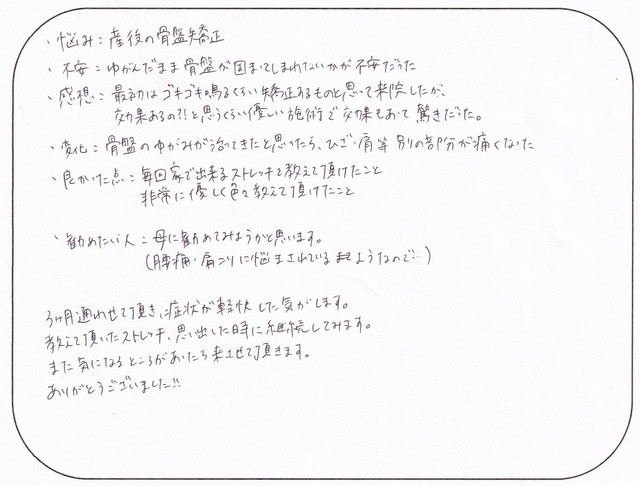 ・悩み：産後の骨盤矯正
・不安：ゆがんだまま骨盤が固まってしまわないかが不安だった
・感想：最初はゴキゴキ鳴るくらい矯正するものと思って来院したが、
効果あるの?!と思うくらい優しい施術で効果もあって驚きだった。
・変化：骨盤のゆがみが治ってきたと思ったら、ひざ・肩等 別の部分が痛くなった
・良かった点：毎回家で出来るストレッチを教えて頂けたこと
非常に優しく色々教えて頂けたこと
・勧めたい人：母に勧めてみようかと思います。
(腰痛・肩こりに悩まされているようなので…)
3ヶ月通わせて頂き、症状が軽快した気がします。
教えて頂いたストレッチ、思い出した時に継続してみます。
また気になるところがあったら来させて頂きます。
ありがとうございました!!